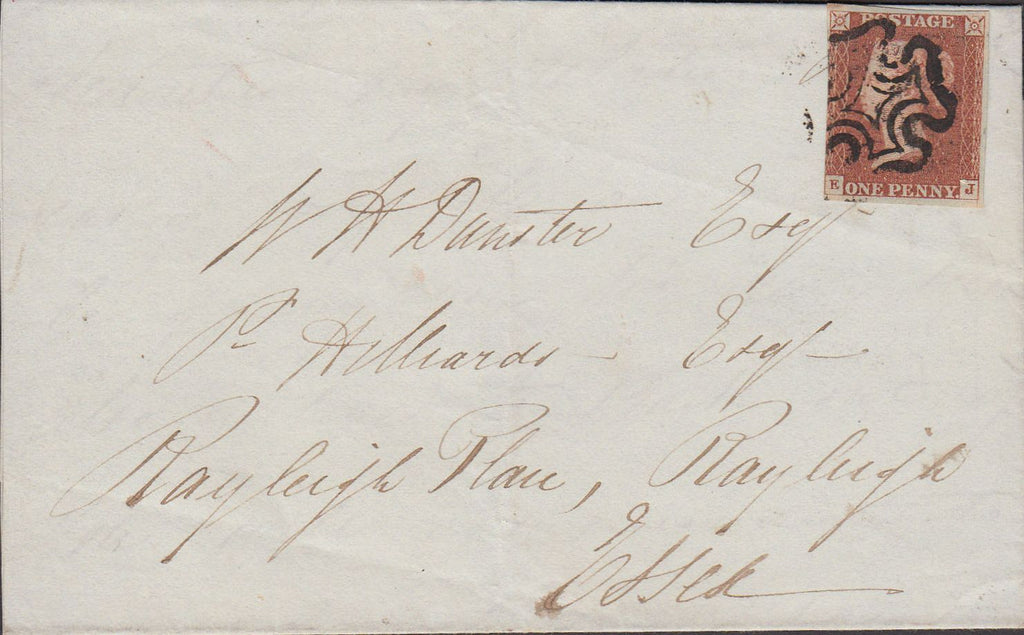 POSTAGE
E ONE PENNY J
W H Dunster Esq
Pr Hilliards Esq
Rayleigh Place, Rayleigh
Essex